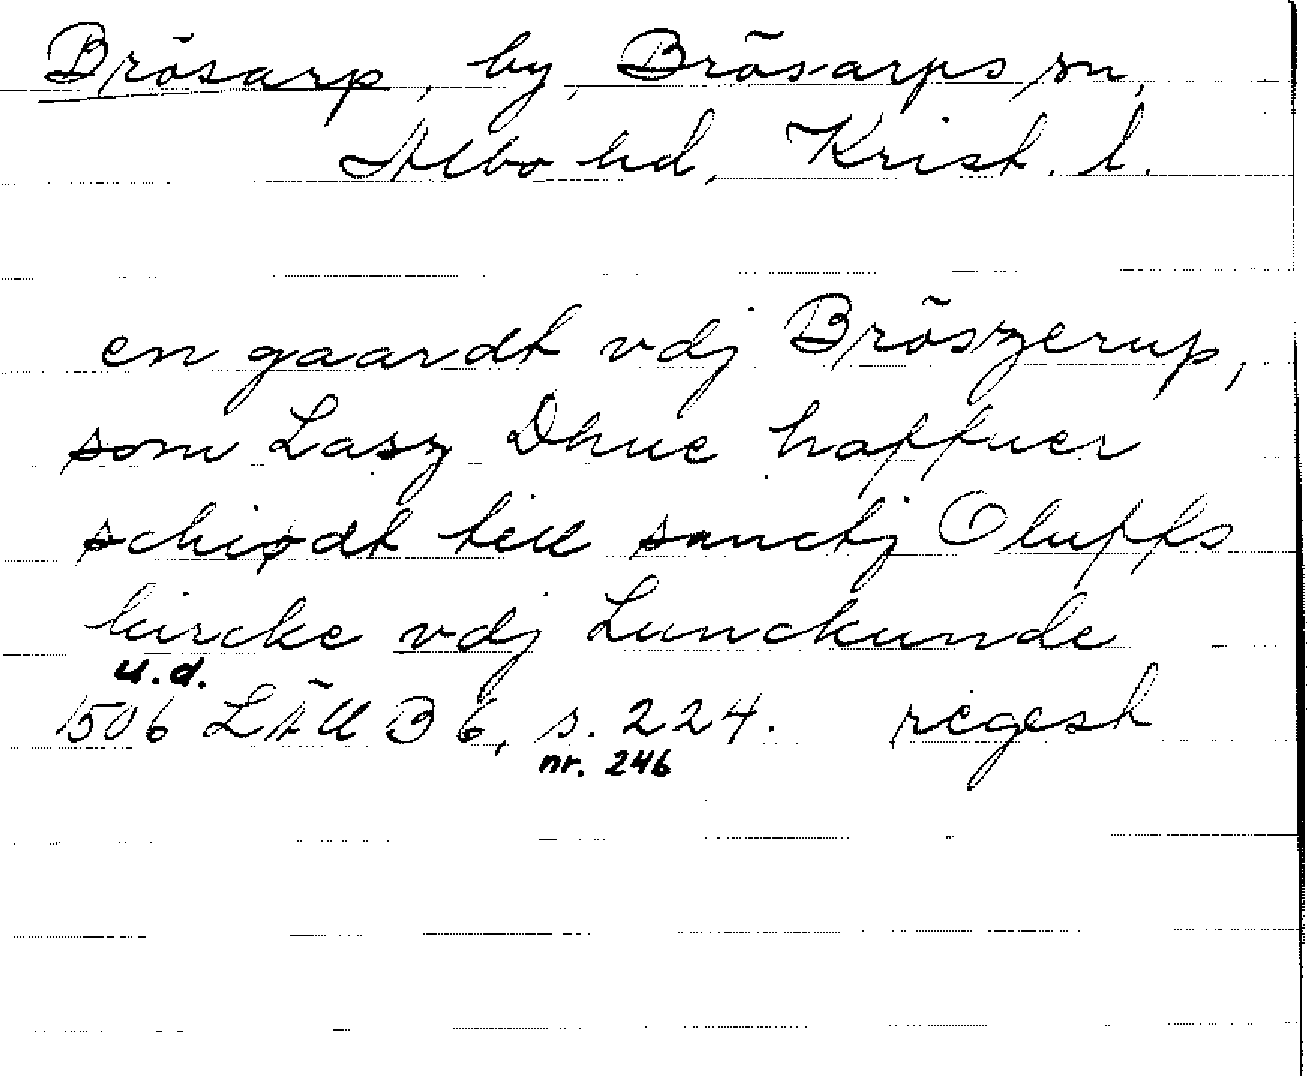 Brösarp, by, Brösarps sn,
Albo hd, Krist. l.
en gaardt vdj Bröszerup,
som Lasz Dhue haffuer
schiødt till sanctj Oluffs
kircke vdj Lunckunde
u.d.
1506 LÄU B 6, s. 224. regest
nr. 246